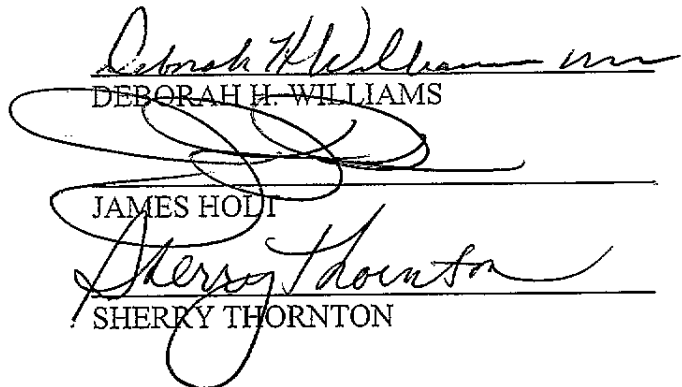 Deborah H Williams
DEBORAH H. WILLIAMS
JAMES HOLT
Sherry Thornton
SHERRY THORNTON